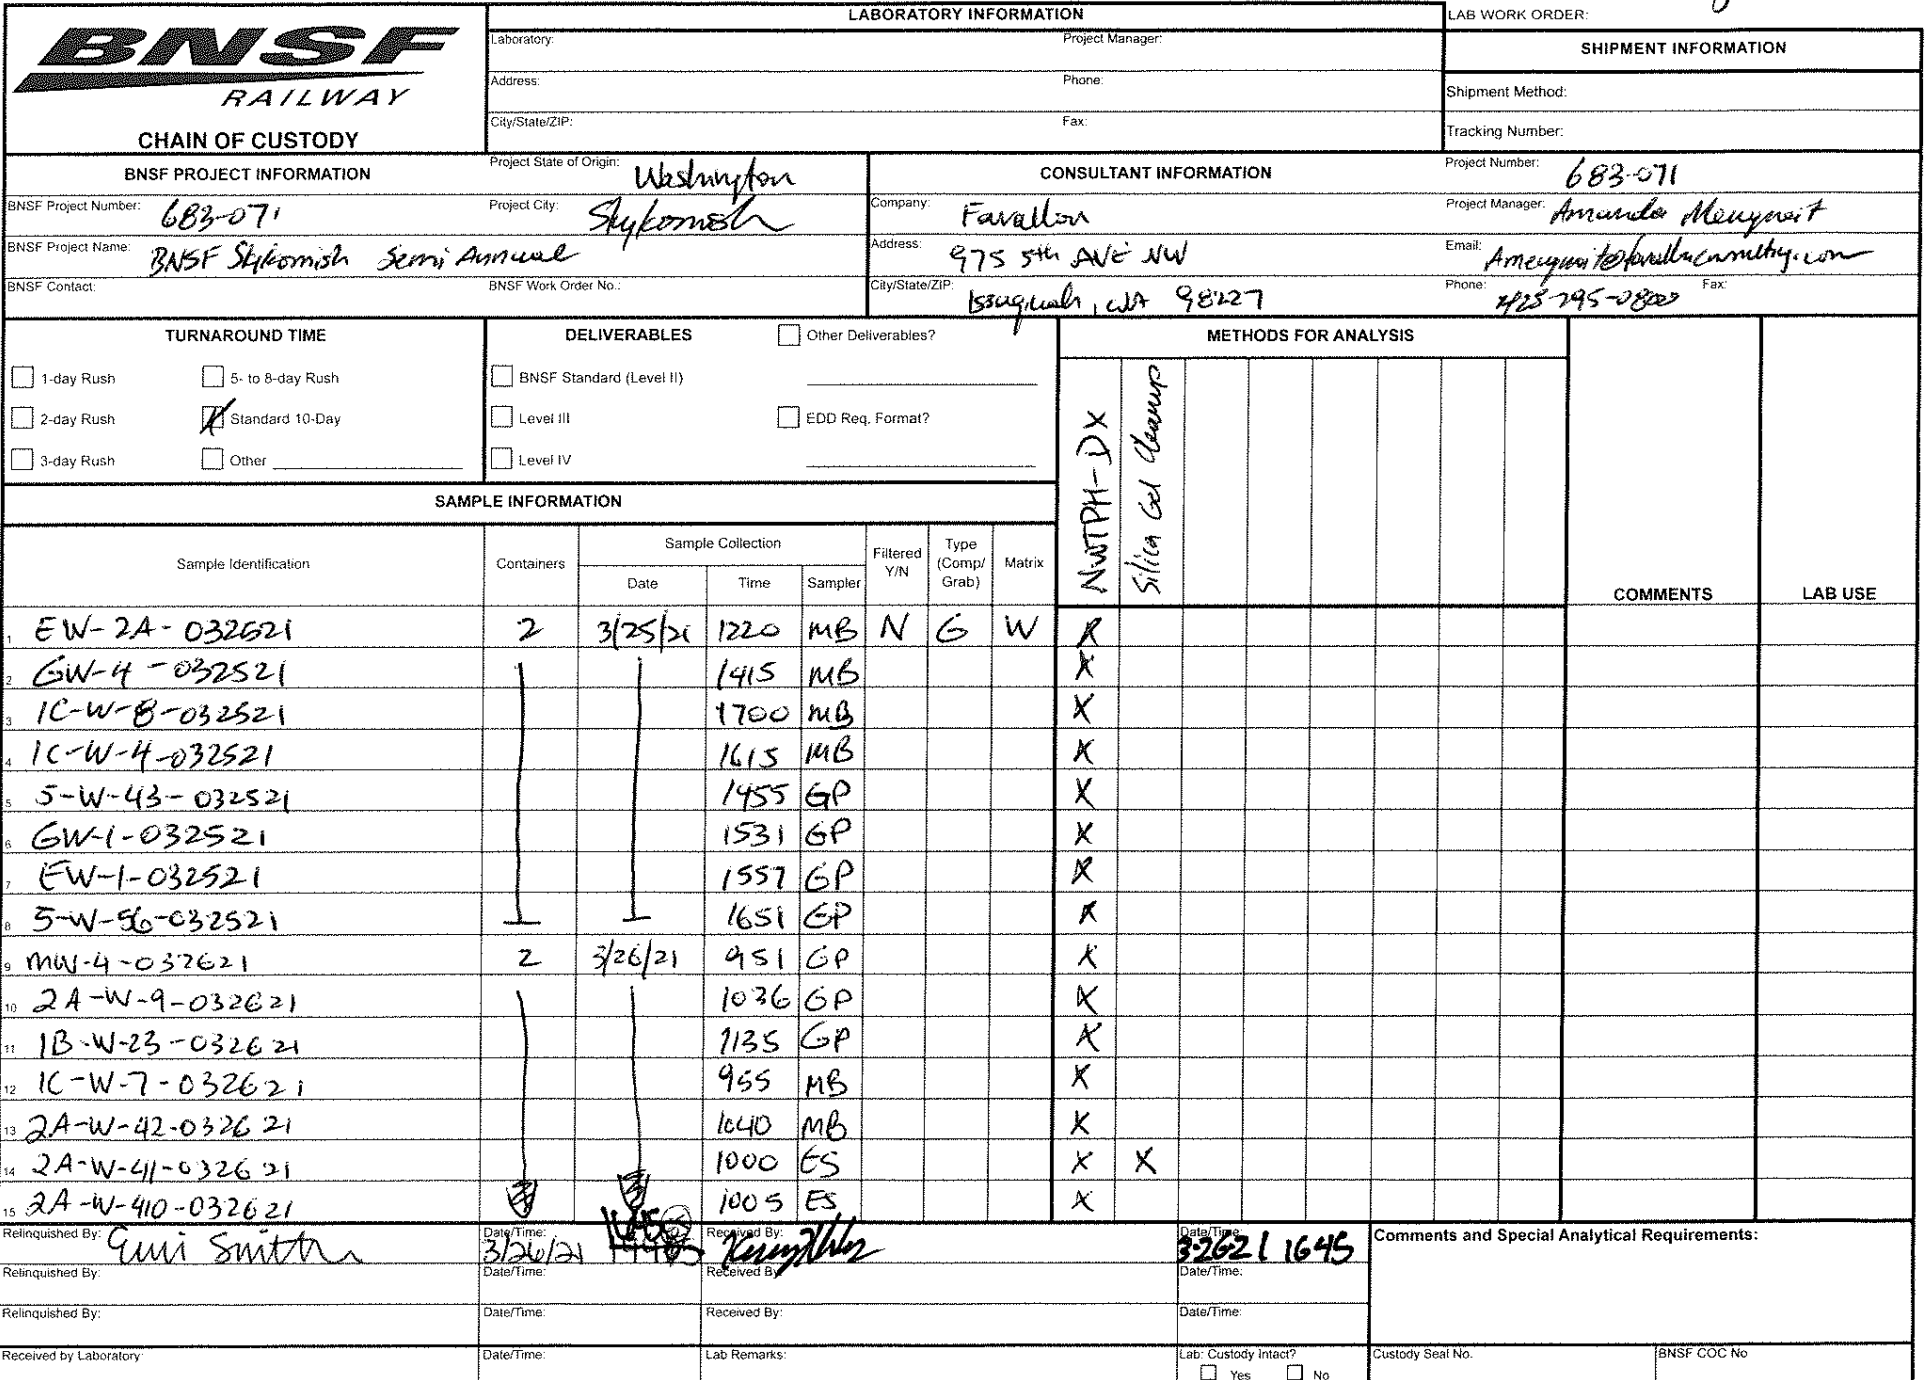 BNSF
RAILWAY
CHAIN OF CUSTODY
LABORATORY INFORMATION
Laboratory: Project Manager:
Address: Phone:
City/State/ZIP: Fax:
LAB WORK ORDER:
SHIPMENT INFORMATION
Shipment Method:
Tracking Number:
BNSF PROJECT INFORMATION Project State of Origin: Washington
BNSF Project Number: 683-071 Project City: Skykomish
BNSF Project Name: BNSF Skykomish Semi Annual
BNSF Contact: BNSF Work Order No.:
CONSULTANT INFORMATION Project Number: 683-071
Company: Farallon Project Manager: Amanda
Address: 975 5th AVE NW Email:
City/State/ZIP: Issaquah, WA 98227 Phone: 425-295-0800 Fax:
TURNAROUND TIME
1-day Rush 5- to 8-day Rush
2-day Rush X Standard 10-Day
3-day Rush Other
DELIVERABLES Other Deliverables?
BNSF Standard (Level II)
Level III EDD Req. Format?
Level IV
METHODS FOR ANALYSIS
NWTPH-DX
Silica Gel Cleanup
COMMENTS
LAB USE
SAMPLE INFORMATION
Sample Identification Containers Sample Collection Filtered Y/N Type (Comp/Grab) Matrix
Date Time Sampler
1 EW-2A-032621 2 3/25/21 1220 MB N G W X
2 GW-4-032521 1415 MB X
3 1C-W-8-032521 1700 MB X
4 1C-W-4-032521 1615 MB X
5 5-W-43-032521 1455 GP X
6 GW-1-032521 1531 GP X
7 EW-1-032521 1557 GP X
8 5-W-56-032521 1651 GP X
9 MW-4-032621 2 3/26/21 951 GP X
10 2A-W-9-032621 1036 GP X
11 1B-W-23-032621 1135 GP X
12 1C-W-7-032621 955 MB X
13 2A-W-42-032621 1040 MB X
14 2A-W-41-032621 1000 ES X X
15 2A-W-410-032621 1005 ES X
Relinquished By: Emi Smith Date/Time: 3/26/21 1645 Received By: Date/Time: 3-26-21 1645
Comments and Special Analytical Requirements:
Relinquished By: Date/Time: Received By: Date/Time:
Relinquished By: Date/Time: Received By: Date/Time:
Received by Laboratory: Date/Time: Lab Remarks: Lab: Custody Intact? Custody Seal No. BNSF COC No
Yes No